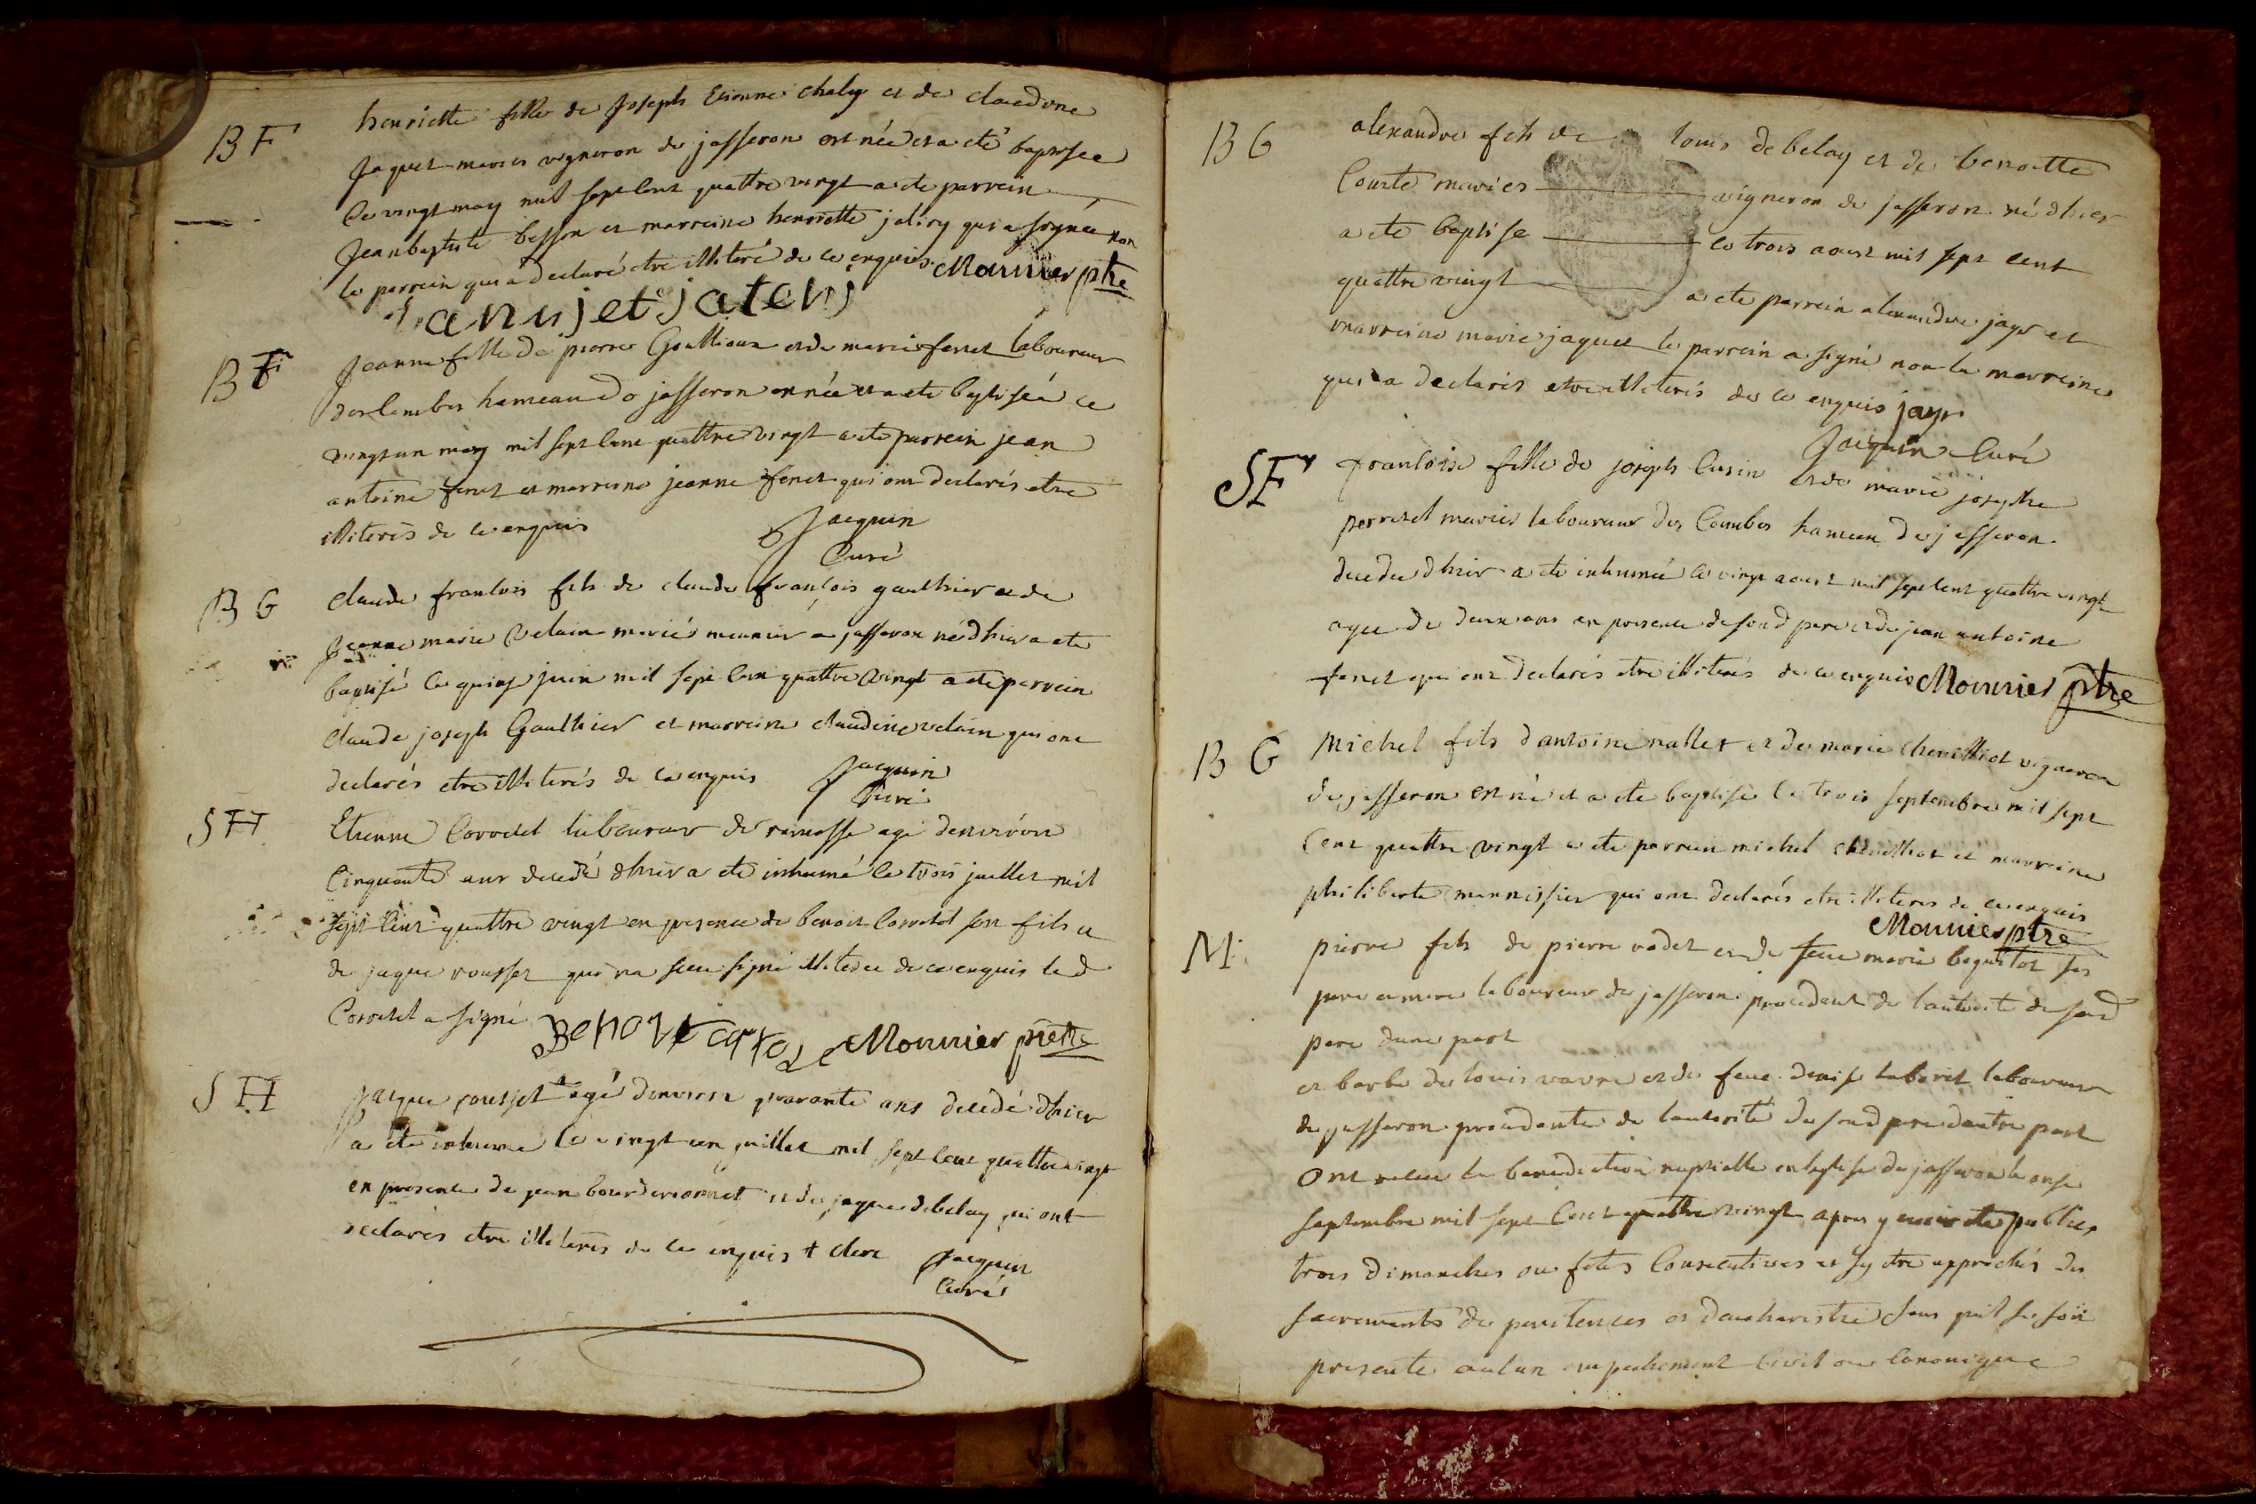 BF
henriette fille de Joseph Etienne chaley et de claudine
Jaquet mariés vigneron de jasseron est née et a eté baptisée
le vingt may mil sept cent quattre vingt a eté parrein
Jean baptiste besson et marreine henriette jaliry qui a signée non
le parrein qui a declaré etre illiteré de ce enquis Monnier ptre
BF
Jeanne fille de pierre Goullioux et de marie fenet laboureur
des Combes hameau de jasseron est née et a eté baptiseé ce
vingt un may mil sept cent quattre vingt a eté parrein jean
antoine fenet et marreine jeanne fenet qui ont declarés etre
illiterés de ce enquis
Jacquin
Curé
BG
claude francois fils de claude françois gaulthier et de
Jeanne marie velain mariés meunier a jasseron né dhier a eté
baptisé le quinze juin mil sept cent quattre vingt a eté parrein
claude joseph Gaulthier et marreine claudine velain qui ont
declarés etre illiterés de ce enquis
Jacquin
Curé
SH
Etienne Corretel laboureur de ramasse agé denviron
Cinquante ans decedé dhier a eté inhumé le trois juillet mil
sept cent quattre vingt en presence de benoit Corretel son fils et
de jaque rousset qui na sceu signé illiteré de ce enquis led
Corretel a signé
Benoit Monnier prêtre
SH
Jacque rousset agé denviron quarante ans decedé dhier
a eté inhumé le vingt un juillet mil sept cent quattre vingt
en presence de jean bourderionnet et de jaque debelay qui ont
declarés etre illiterés de ce enquis
Jacquin
Curé
BG
alexandre fils de louis debelay et de benoitte
Courte mariés vigneron de jasseron né dhier
a eté baptisé le trois aoust mil sept cent
quattre vingt a eté parrein alexandre jayr et
marreine marie jaquet le parrein a signé non la marreine
qui a declarés etre illiterés de ce enquis jayr
Jacquin Curé
SF
francoise fille de joseph Cusin et de marie josephte
perretel mariés laboureur des Combes hameau de jasseron
decedée dhier a eté inhumée le vingt aoust mil sept cent quattre vingt
agee de deux ans en presence de son d pere et de jean antoine
fenet qui ont declarés etre illiterés de ce enquis Monnier ptre
BG
Michel fils dantoine nallet et de marie chenillot vigneron
de jasseron est né et a eté baptisé le trois septembre mil sept
Cent quattre vingt a eté parrein michel chenillot et marreine
philiberte monnissier qui ont declarés etre illiterés de ce enquis
Monnier ptre
M.
pierre fils de pierre rodet et de feue marie ses
pere et mere laboureur de jasseron procedant de lautorité de son d
pere dune part
et barbe de louis vavre et de feue denise laboureur
de jasseron procedante de lautorité de son d pere dautre part
Ont receu la benediction nuptialle en leglise de jasseron le onze
septembre mil sept Cent quattre vingt apres y avoir eté publiés
trois dimanches ou fêtes Consecutives et sy etre approchés des
sacrements de penitences et deucharistie sans quil se soit
presenté aucun empechement Civil ou Canonique